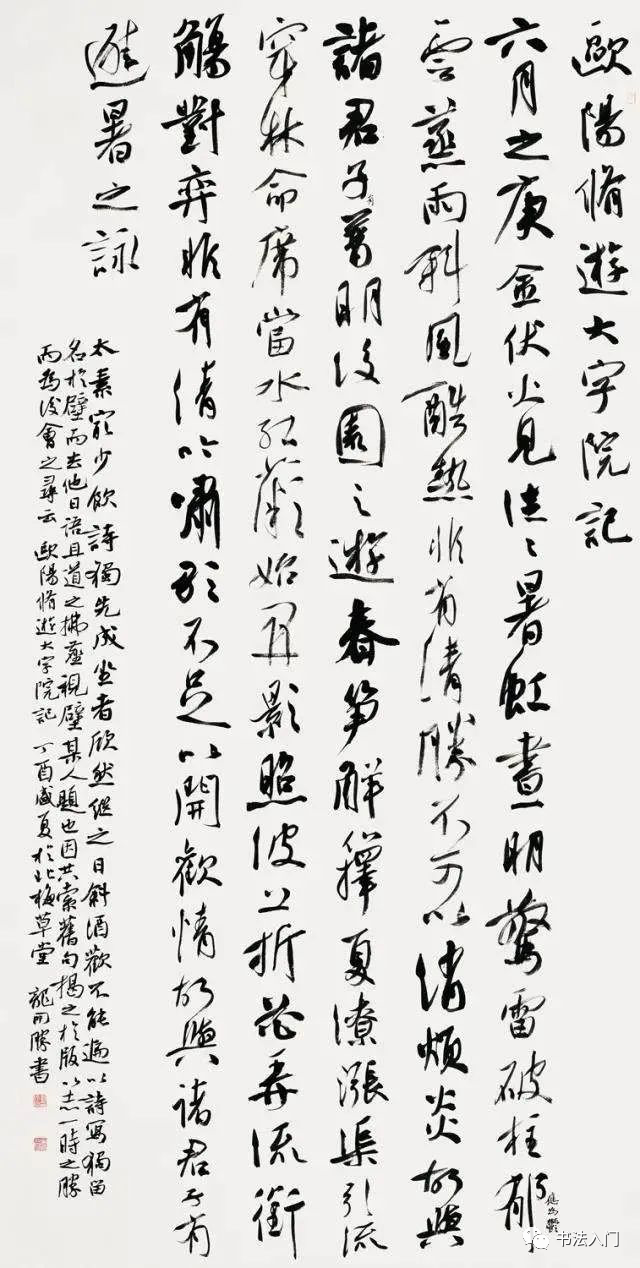 歐陽脩遊大字院記
六月之庚金伏火見往々暑虹晝明驚雷破柱郁
雲蒸雨斜風酷熱非有清勝不可以消煩炎故與
諸君子有普明後園之遊春笋解籜夏潦漲渠引流
穿林命席當水紅薇始開影照波上折花弄流銜
觴對弈非有清吟嘯歌不足以開歡情故與諸君子有
避暑之詠
太素最少飲詩獨先成坐者欣然繼之日斜酒歡不能遍以詩寫獨留
名於壁而去他日語且道之拂塵視壁某人題也因共索舊句揭之於版以志一時之勝
而為後會之尋云 歐陽脩遊大字院記 丁酉盛夏於北梅草堂 龍開勝書
书法入门